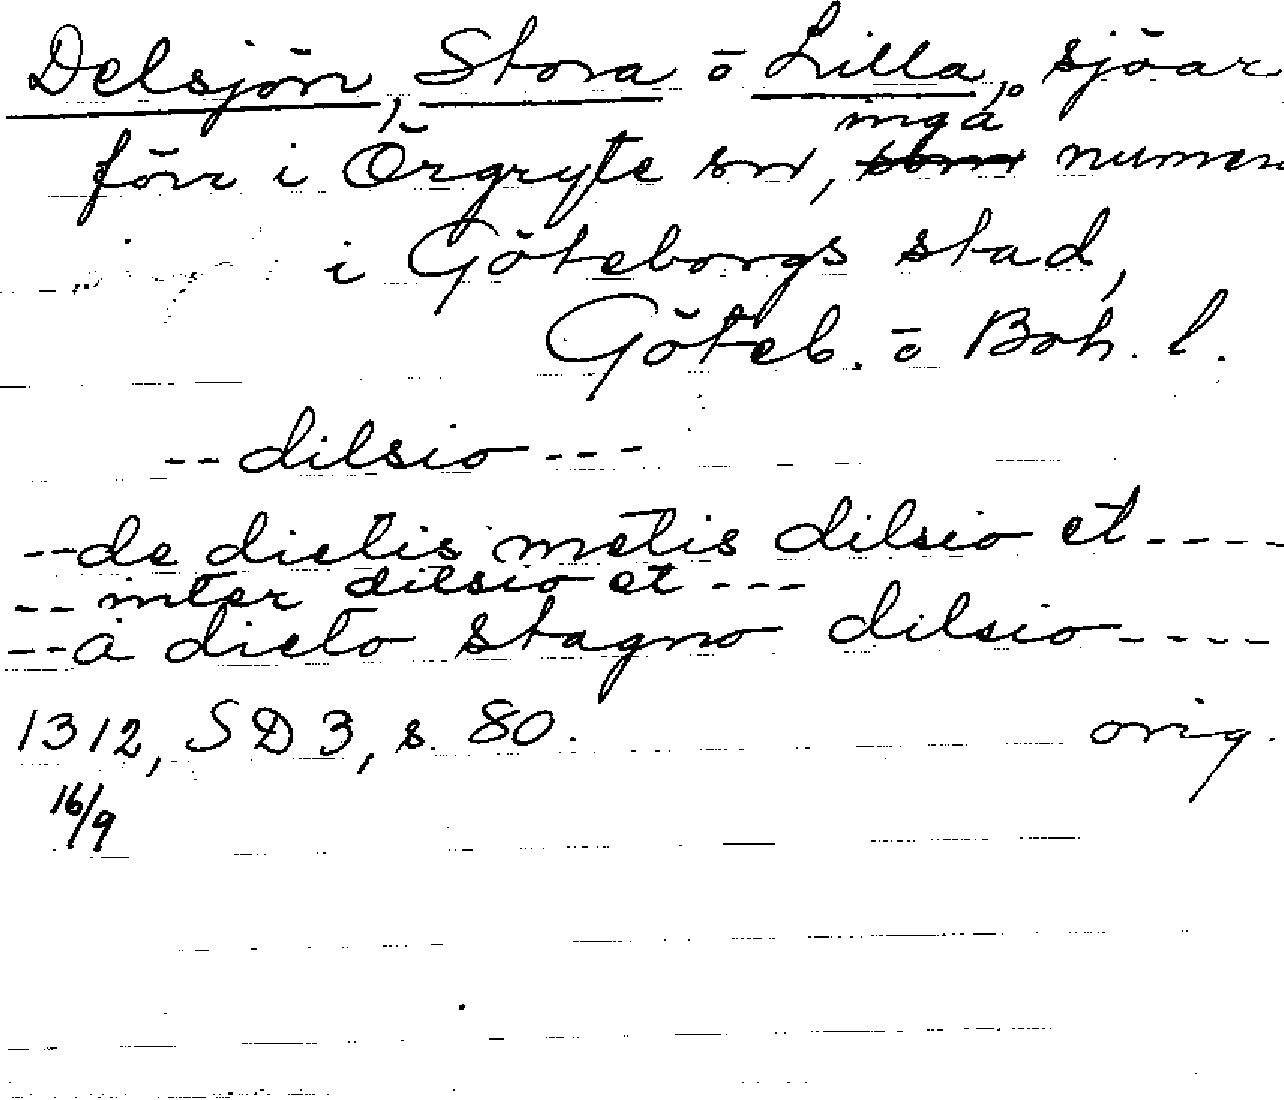 Delsjön, Stora o Lilla, sjöar
förr i Örgryte sn, ingå numera
i Göteborgs stad,
Göteb. o Boh. l.
-- dilsio ---
-- de dictis metis dilsio et ----
-- inter dilsio et ---
-- a dicto stagno dilsio ----
1312, SD 3, s. 80. orig.
16/9